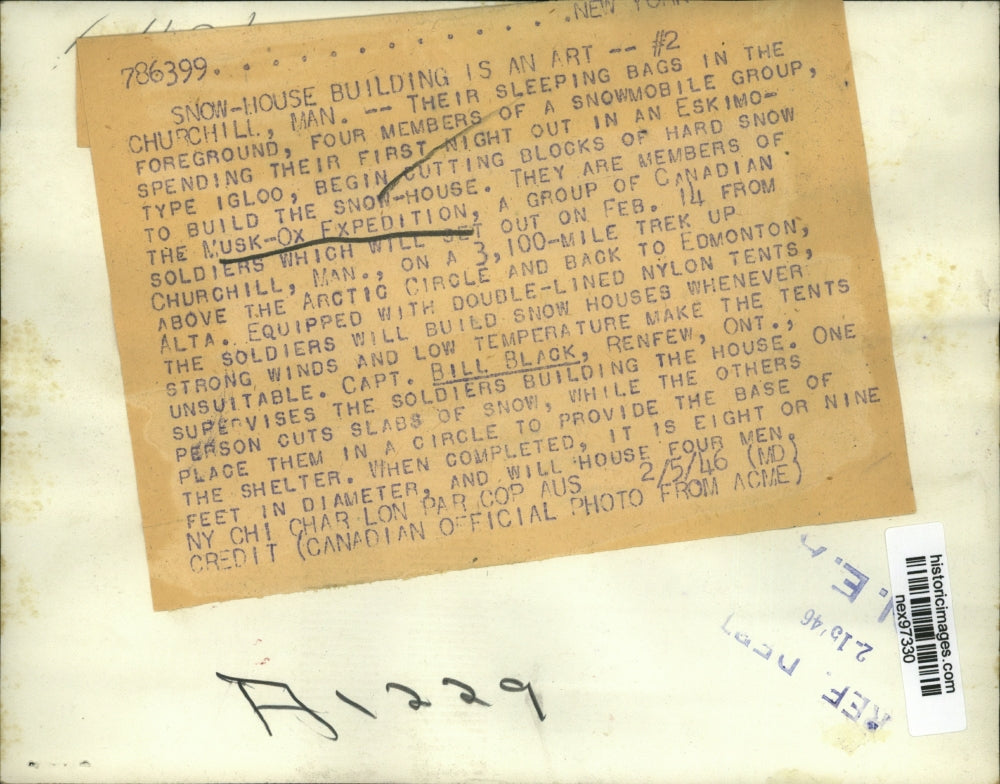 NEW YORK
786399.............
SNOW-HOUSE BUILDING IS AN ART -- #2
CHURCHILL, MAN. -- THEIR SLEEPING BAGS IN THE
FOREGROUND, FOUR MEMBERS OF A SNOWMOBILE GROUP,
SPENDING THEIR FIRST NIGHT OUT IN AN ESKIMO-
TYPE IGLOO, BEGIN CUTTING BLOCKS OF HARD SNOW
TO BUILD THE SNOW-HOUSE. THEY ARE MEMBERS OF
THE MUSK-OX EXPEDITION, A GROUP OF CANADIAN
SOLDIERS WHICH WILL SET OUT ON FEB. 14 FROM
CHURCHILL, MAN., ON A 3,100-MILE TREK UP
ABOVE THE ARCTIC CIRCLE AND BACK TO EDMONTON,
ALTA. EQUIPPED WITH DOUBLE-LINED NYLON TENTS,
THE SOLDIERS WILL BUILD SNOW HOUSES WHENEVER
STRONG WINDS AND LOW TEMPERATURE MAKE THE TENTS
UNSUITABLE. CAPT. BILL BLACK, RENFEW, ONT.,
SUPERVISES THE SOLDIERS BUILDING THE HOUSE. ONE
PERSON CUTS SLABS OF SNOW, WHILE THE OTHERS
PLACE THEM IN A CIRCLE TO PROVIDE THE BASE OF
THE SHELTER. WHEN COMPLETED, IT IS EIGHT OR NINE
FEET IN DIAMETER, AND WILL HOUSE FOUR MEN.
NY CHI CHAR LON PAR COP AUS 2/5/46 (MD)
CREDIT (CANADIAN OFFICIAL PHOTO FROM ACME)
historicimages.com
nex97330
2-15'46
REF. DEPT
A1229